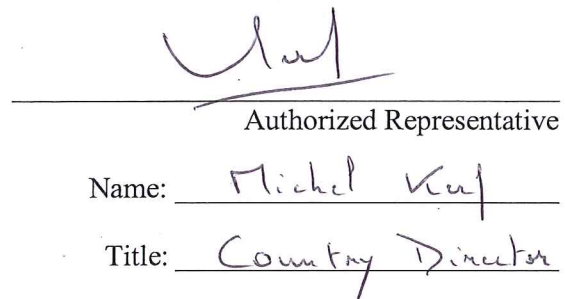 Authorized Representative
Name: Michel Kerf
Title: Country Director